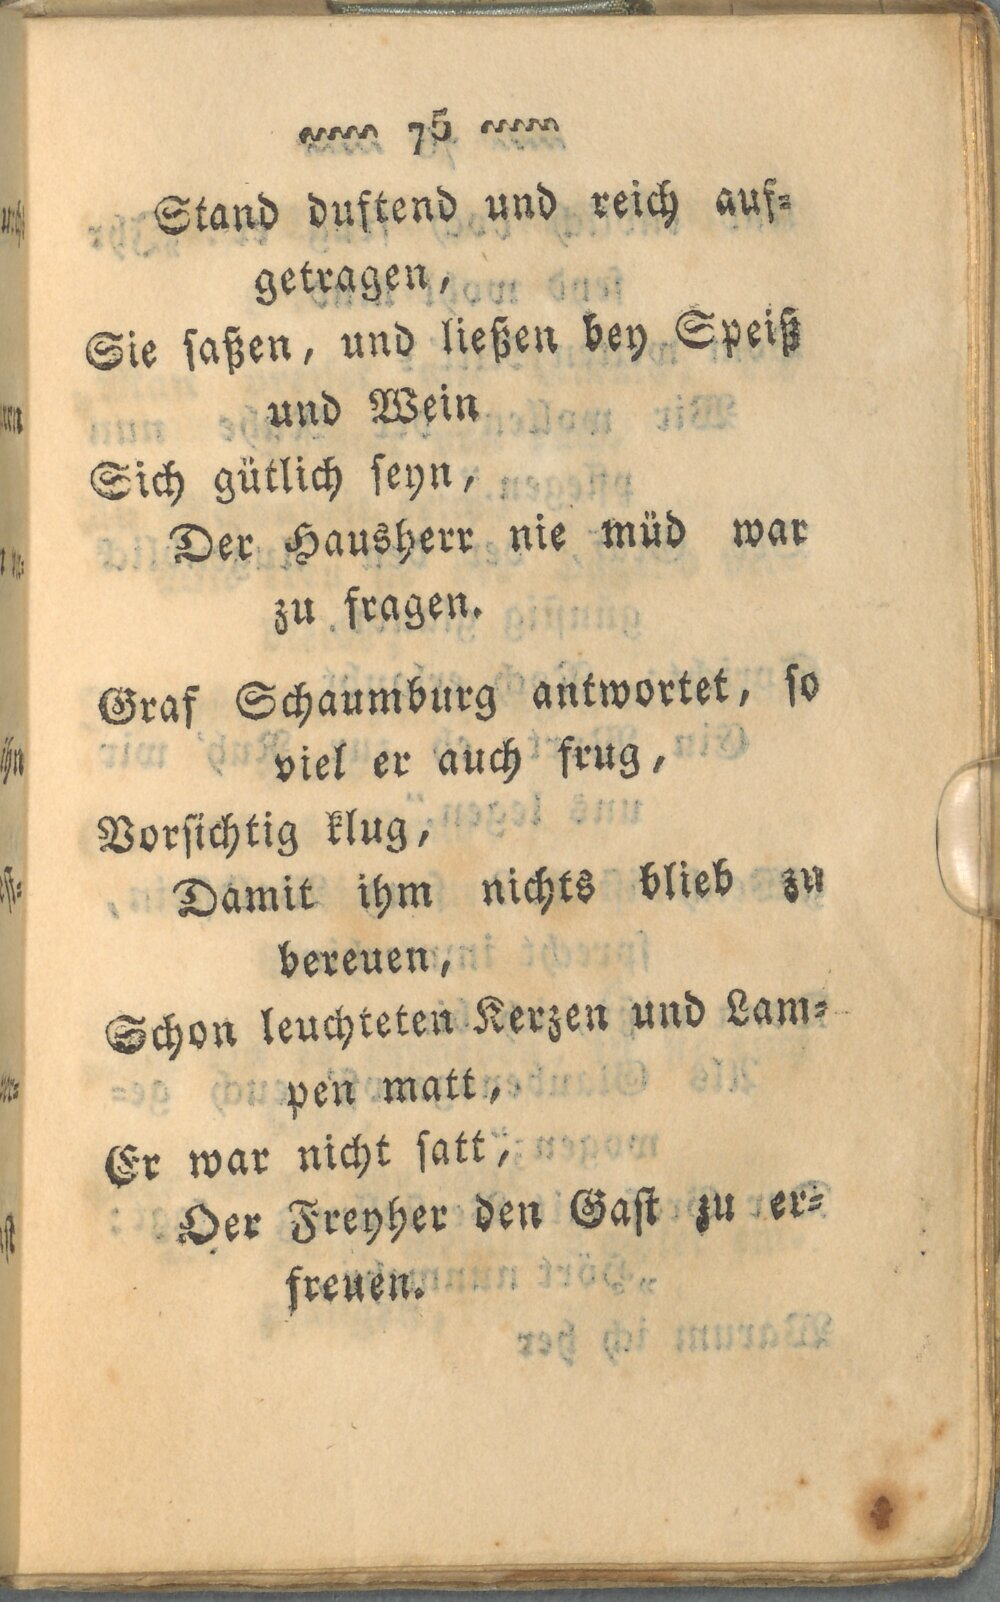 75
Stand duftend und reich auf-
getragen,
Sie saßen, und ließen bey Speiß
und Wein
Sich gütlich seyn,
Der Hausherr nie müd war
zu fragen.
Graf Schaumburg antwortet, so
viel er auch frug,
Vorsichtig klug,
Damit ihm nichts blieb zu
bereuen,
Schon leuchteten Kerzen und Lam-
pen matt,
Er war nicht satt,
Der Freyher den Gast zu er-
freuen.